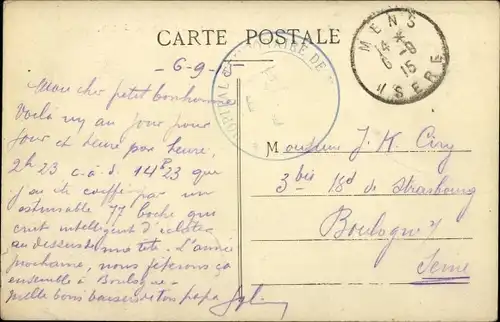 CARTE POSTALE
MENS
14 *
6 - 9
15
ISERE
HOPITAL DE
6-9-
Mon cher petit bonhomme
Voilà un an jour pour
jour et heure par heure,
2h 23 c.à.d. 14h 23 que
j'ai été coiffé par un
estimable 77 boche qui
crut intelligent d'éclater
au dessus de ma tête. L'année
prochaine, nous fêterons ça
ensemble à Boulogne.
Mille bons baisers de ton papa
Monsieur J. K. Ciry
3 bis Bd de Strasbourg
Boulogne s/
Seine